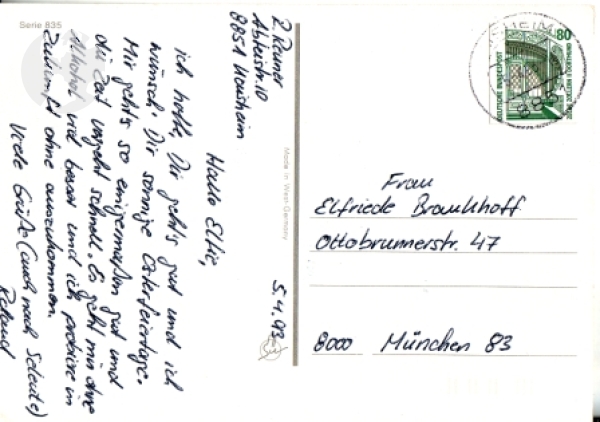 Serie 835
R. Renner
Abteistr. 10
8851 Kaisheim
5.4.93
Hallo Elfie,
ich hoffe, Dir geht's gut und ich
wünsch' Dir sonnige Osterfeiertage.
Mir geht's so einigermaßen gut und
die Zeit vergeht schnell. Es geht mir ohne
Alkohol viel besser und ich probiere in
Zukunft ohne auszukommen.
Viele Grüße (auch nach
Roland
Made in West-Germany
80
DEUTSCHE BUNDESPOST
HEIM
885
Frau
Elfriede Braukhoff
Ottobrunnerstr. 47
8000 München 83